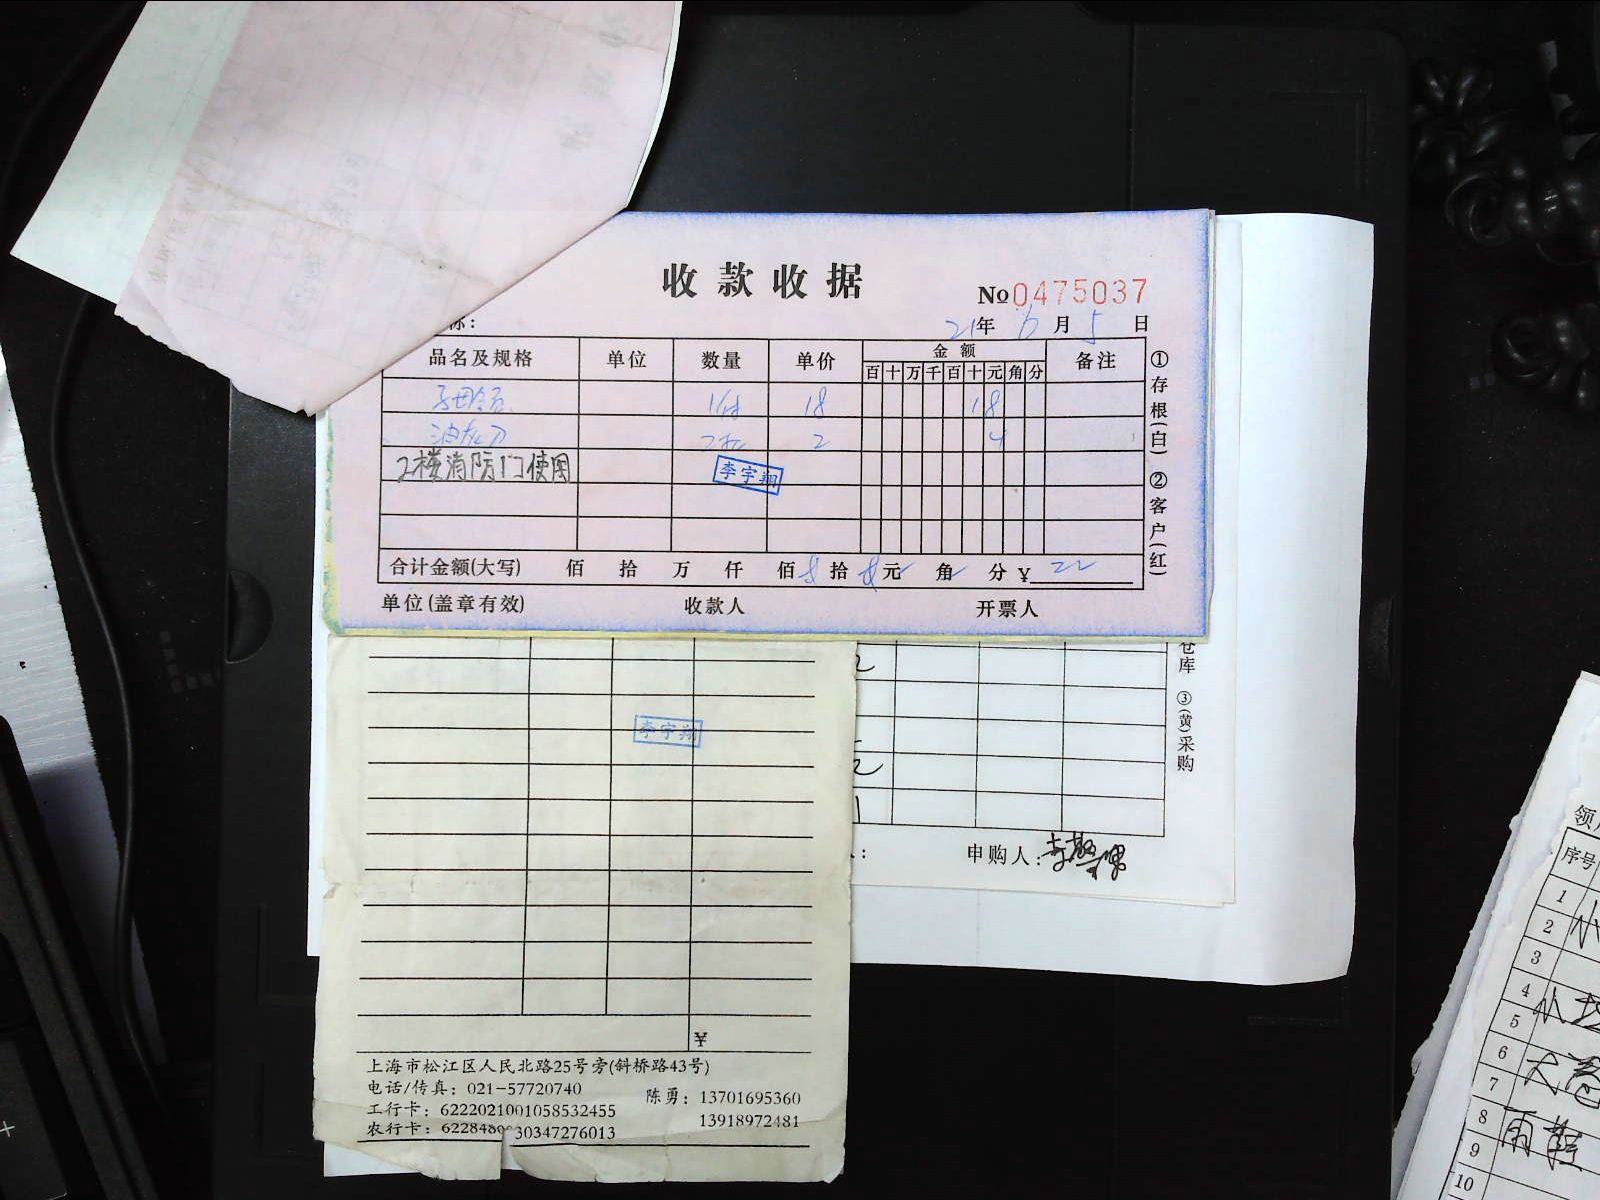 收款收据
No 0475037
标:
21年 6月 5日
品名及规格 单位 数量 单价 金额 备注
百 十 万 千 百 十 元 角 分
子母合页 1付 18 18
2 4
2楼消防门使用
李宇翔
合计金额(大写) 佰 拾 万 仟 佰 拾 元 角 分 ¥ 22
单位(盖章有效) 收款人 开票人
①存根(白) ②客户(红)
仓库 ③(黄)采购
2
李宇翔
2
1
申购人:
¥
上海市松江区人民北路25号旁(斜桥路43号)
电话/传真: 021-57720740
陈勇: 13701695360
工行卡: 6222021001058532455
13918972481
农行卡: 622848 30347276013
领
序号
1
2 小
3
4 小
5
6 大卷
7
8 雨鞋
9
10